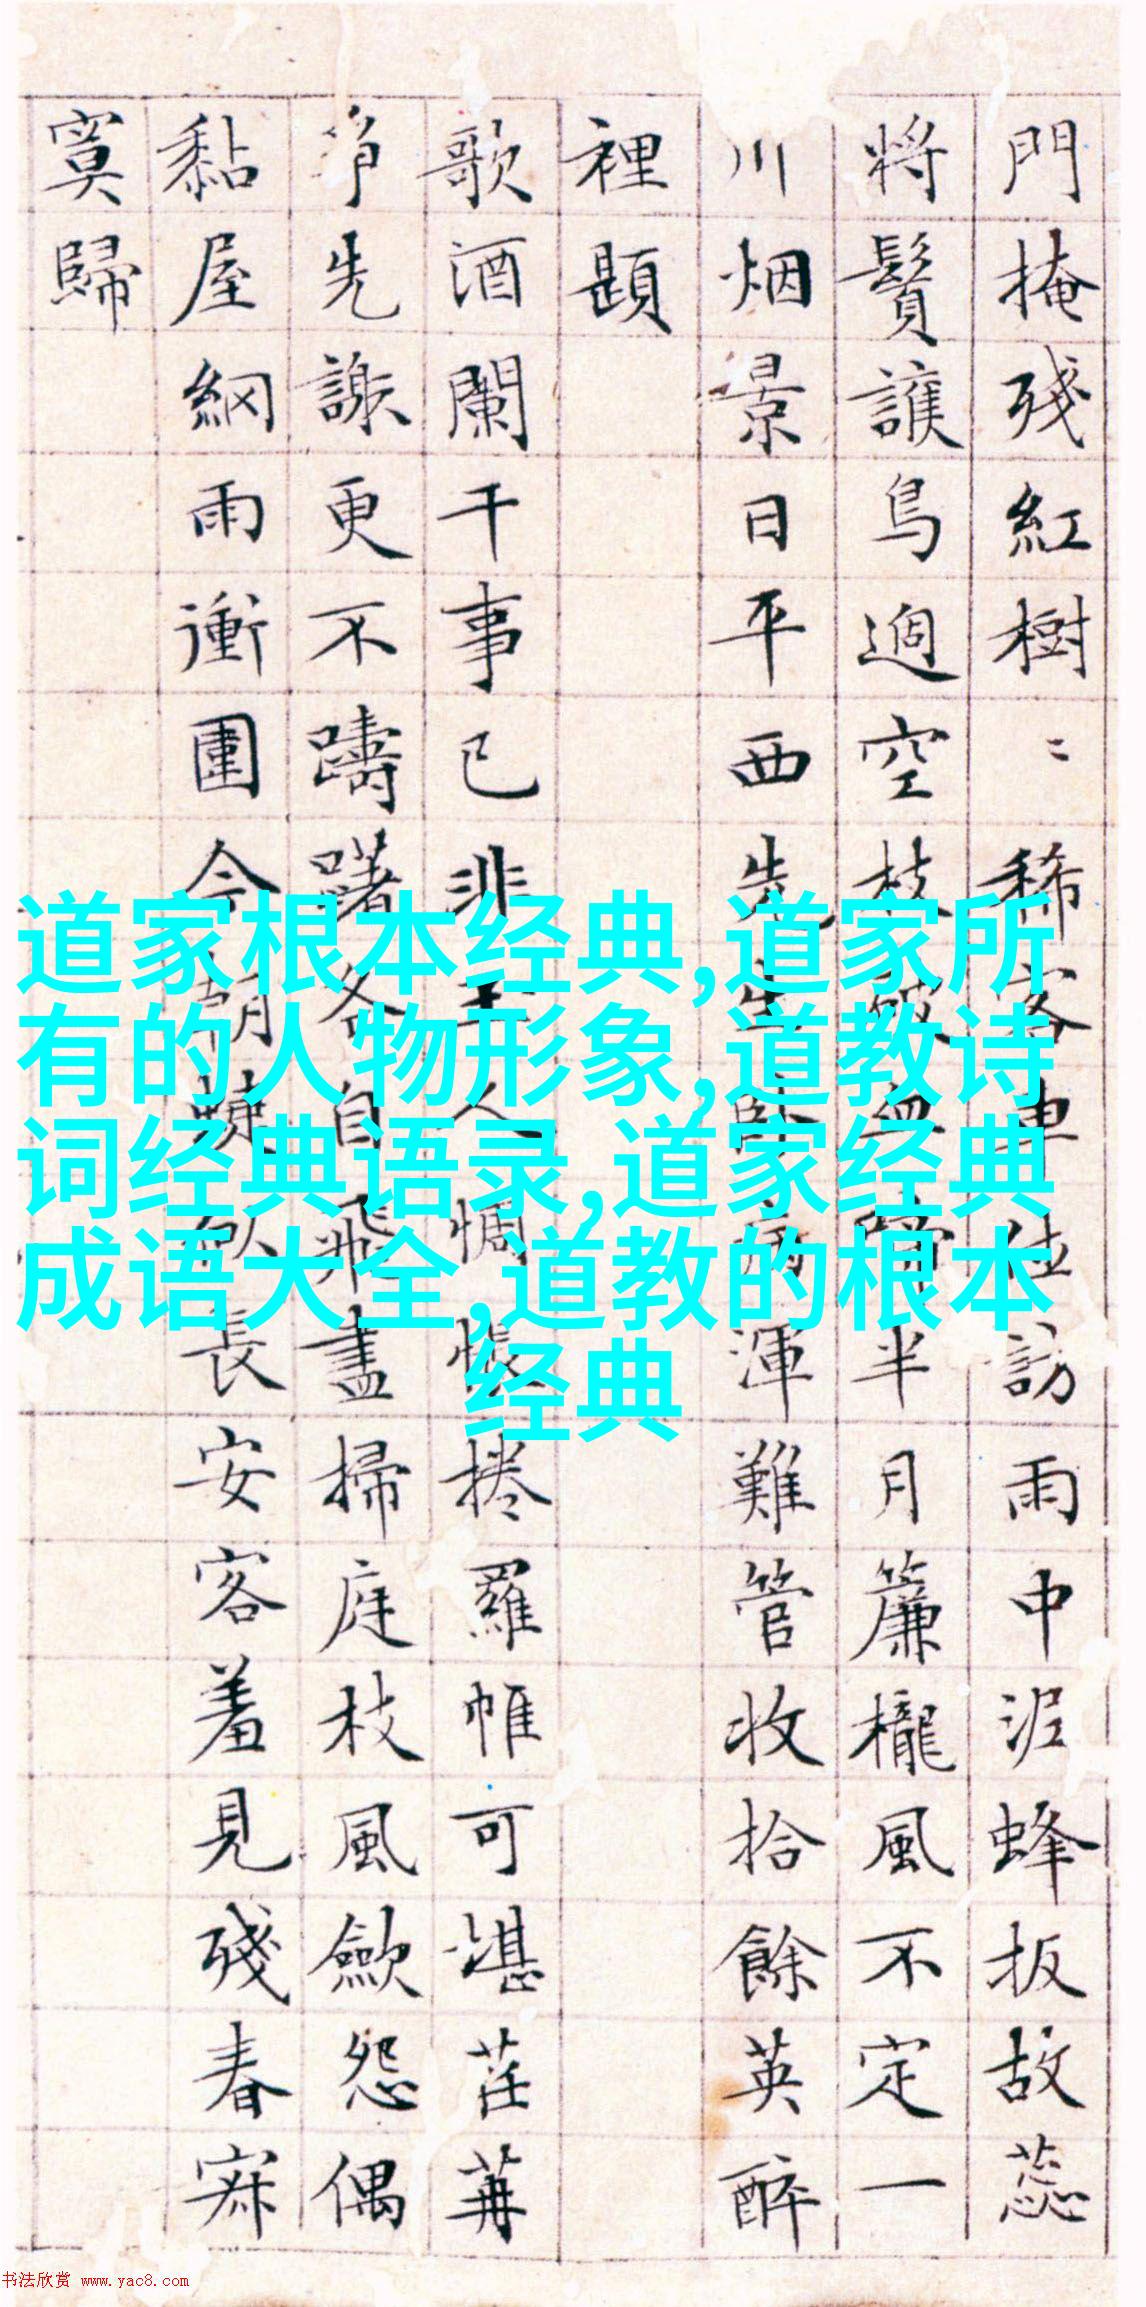 門掩殘紅樹〻稀客車訪雨中泥蜂扳故蕊
將鬚護鳥過空枝破血啼半月簾櫳風不定一
川烟景日平西先生臥病渾難管收拾餘英醉
裡題
歌酒闌干事已非主人惆悵捲羅帷可堪荏苒
爭先謝更不躊躇各自飛盡掃庭枝風歛怨偶
黏屋網雨衝圍今朝臥長安客羞見殘春寂
寞歸
道家根本经典,道家所
有的人物形象,道教诗
词经典语录,道家经典
成语大全,道教的根本
经典
书法欣赏 www.yac8.com